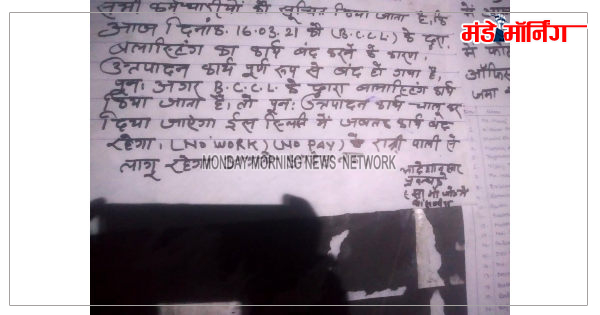 सभी कर्मचारीयों को सूचित किया जाता है, कि
आज दिनांक. 16.03.21 को (B.C.C.L.) के द्वारा
ब्लास्टिंग का कार्य बंद करने के कारण,
उत्पादन कार्य पूर्ण रूप से बंद हो गया है,
पुनः अगर B.C.C.L. के द्वारा ब्लास्टिंग कार्य
किया जाता है, तो पुनः उत्पादन कार्य चालू कर
दिया जाएगा ईस स्थिती में जबतक कार्य बंद
रहेगा, (NO WORK) (NO PAY) के रात्री पाली से
लागू रहेगा
आदेशानुसार
प्रबन्धक
मंडे मॉर्निंग
ऑफिस
जमा
MONDAY MORNING NEWS NETWORK